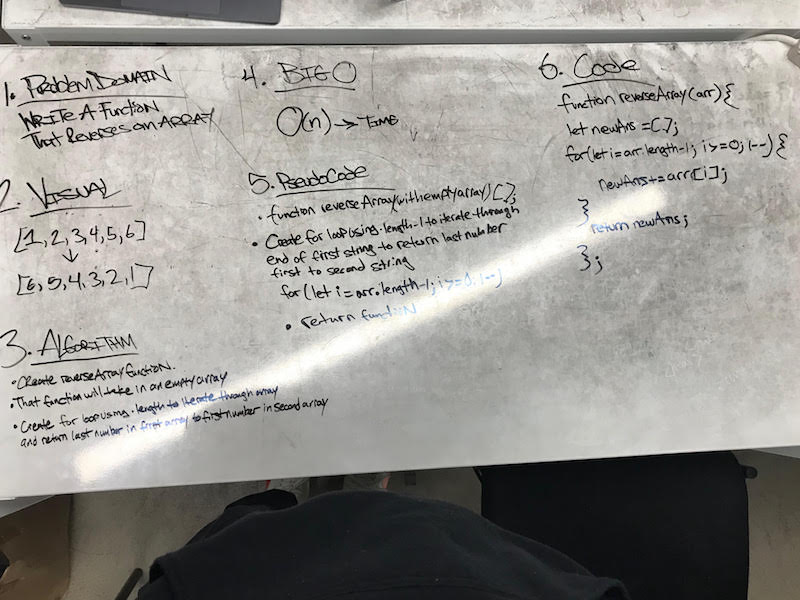 1. Problem Domain
Write A Function
That Reverses an Array
2. Visual
[1,2,3,4,5,6]
↓
[6,5,4,3,2,1]
3. Algorithm
• Create reverseArray function.
• That function will take in an empty array
• Create for loop using .length to iterate through array
and return last number in first array to first number in second array
4. Big O
O(n) → Time
5. PseudoCode
• function reverseArray(with empty array) [];
• Create for loop using .length-1 to iterate through
end of first string to return last number
first to second string
for(let i=arr.length-1; i>=0; i--)
• return function
6. Code
function reverseArray(arr){
let newAns=[];
for(let i=arr.length-1; i>=0; i--){
newAns+=arr[i];
}
return newAns;
};